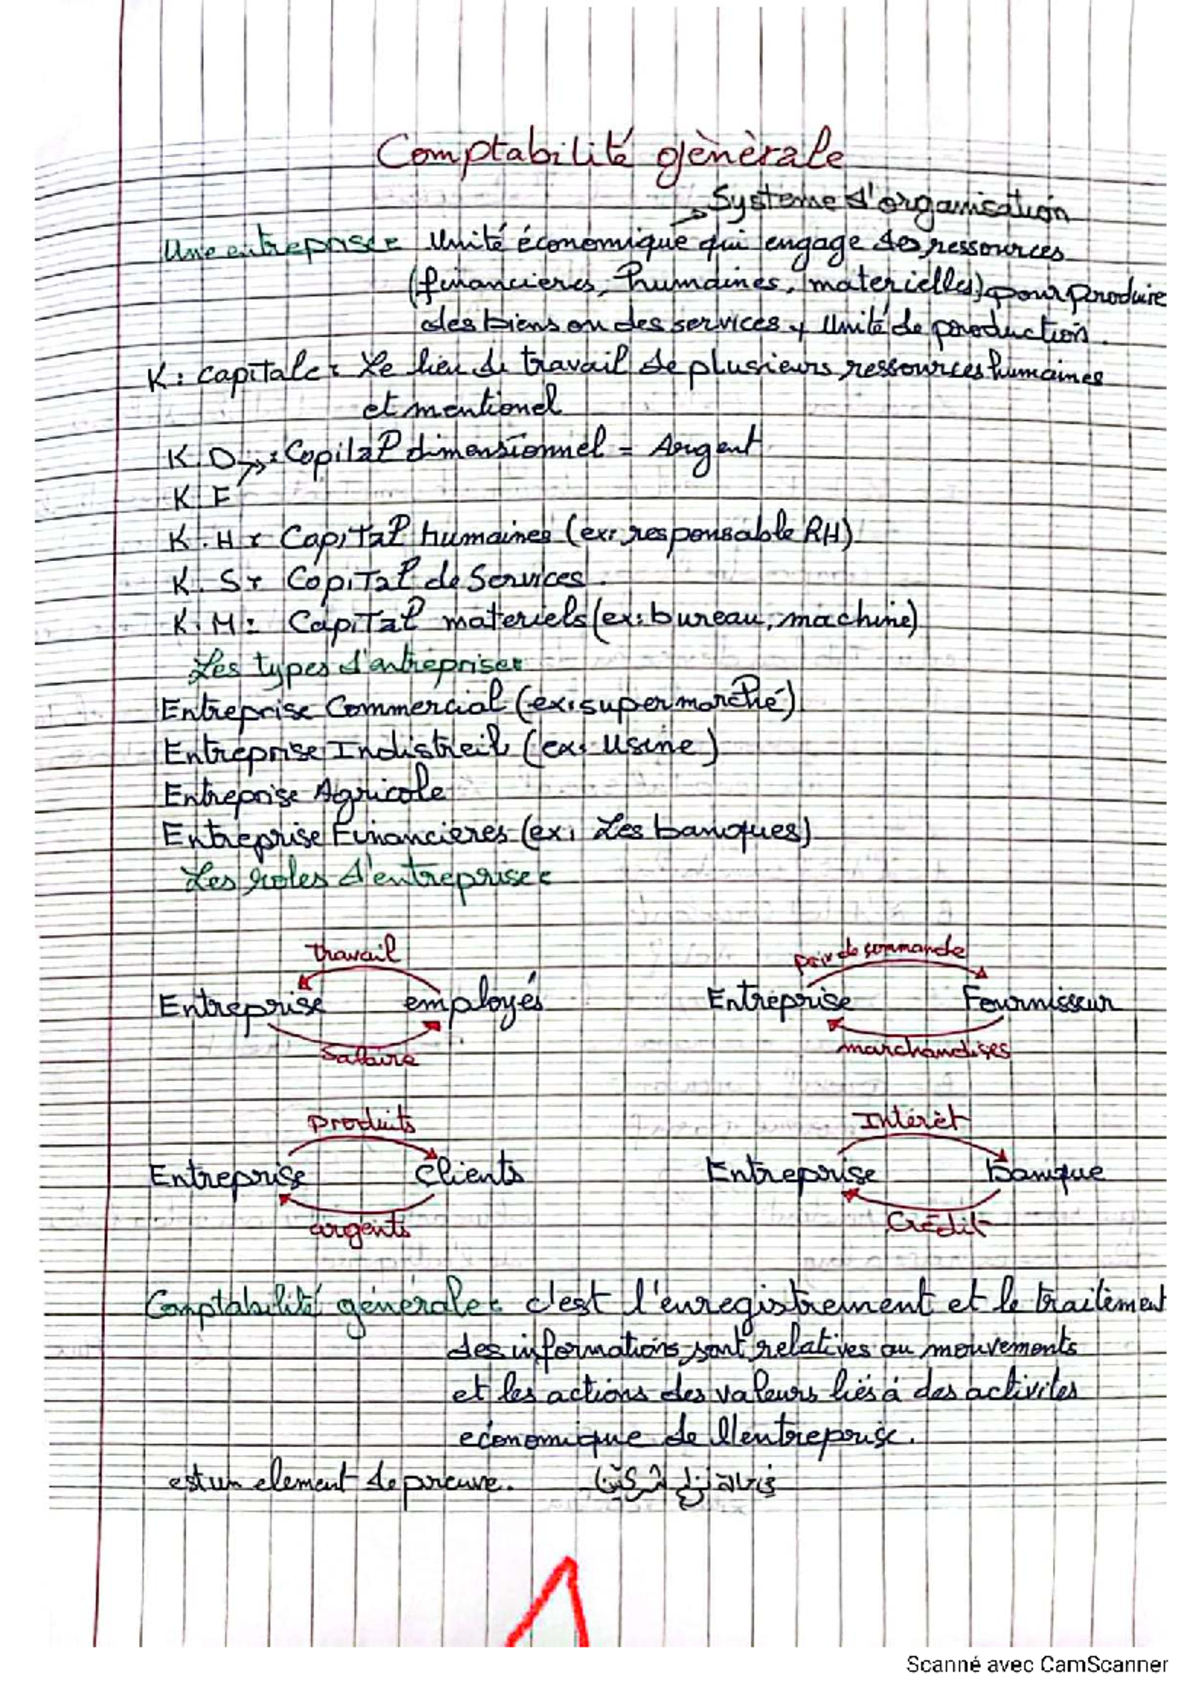 Comptabilité gènèrale
Systeme d'organisation
Une entreprise : Unité économique qui engage des ressources
(financieres, humaines, materielles) pour produire
des biens ou des services, Unité de production.
K : capitale : Le lieu de travail de plusieurs ressources humaines
et mentionel
K.D : Capital dimensionnel = Argent
K F
K.H : Capital humaines (ex: responsable RH)
K.S : Capital de Services.
K.M : Capital materiels (ex: bureau, machine)
Les types d'entreprise :
Entreprise Commercial (ex: supermarché)
Entreprise Indistreil (ex: Usine)
Entreprise Agricole
Entreprise Financieres (ex: Les banques)
Les roles d'entreprise :
travail
Entreprise employés
Salaire
de commande
Entreprise Fournisseur
marchandises
produits
Entreprise clients
argents
Intérèt
Entreprise banque
Crédit
Comptabilité génerale : c'est l'enregistrement et le traitement
des informations sont relatives au mouvements
et les actions des valeurs liés à des activites
economique de l'entreprise.
est un element de preuve.
Scanné avec CamScanner